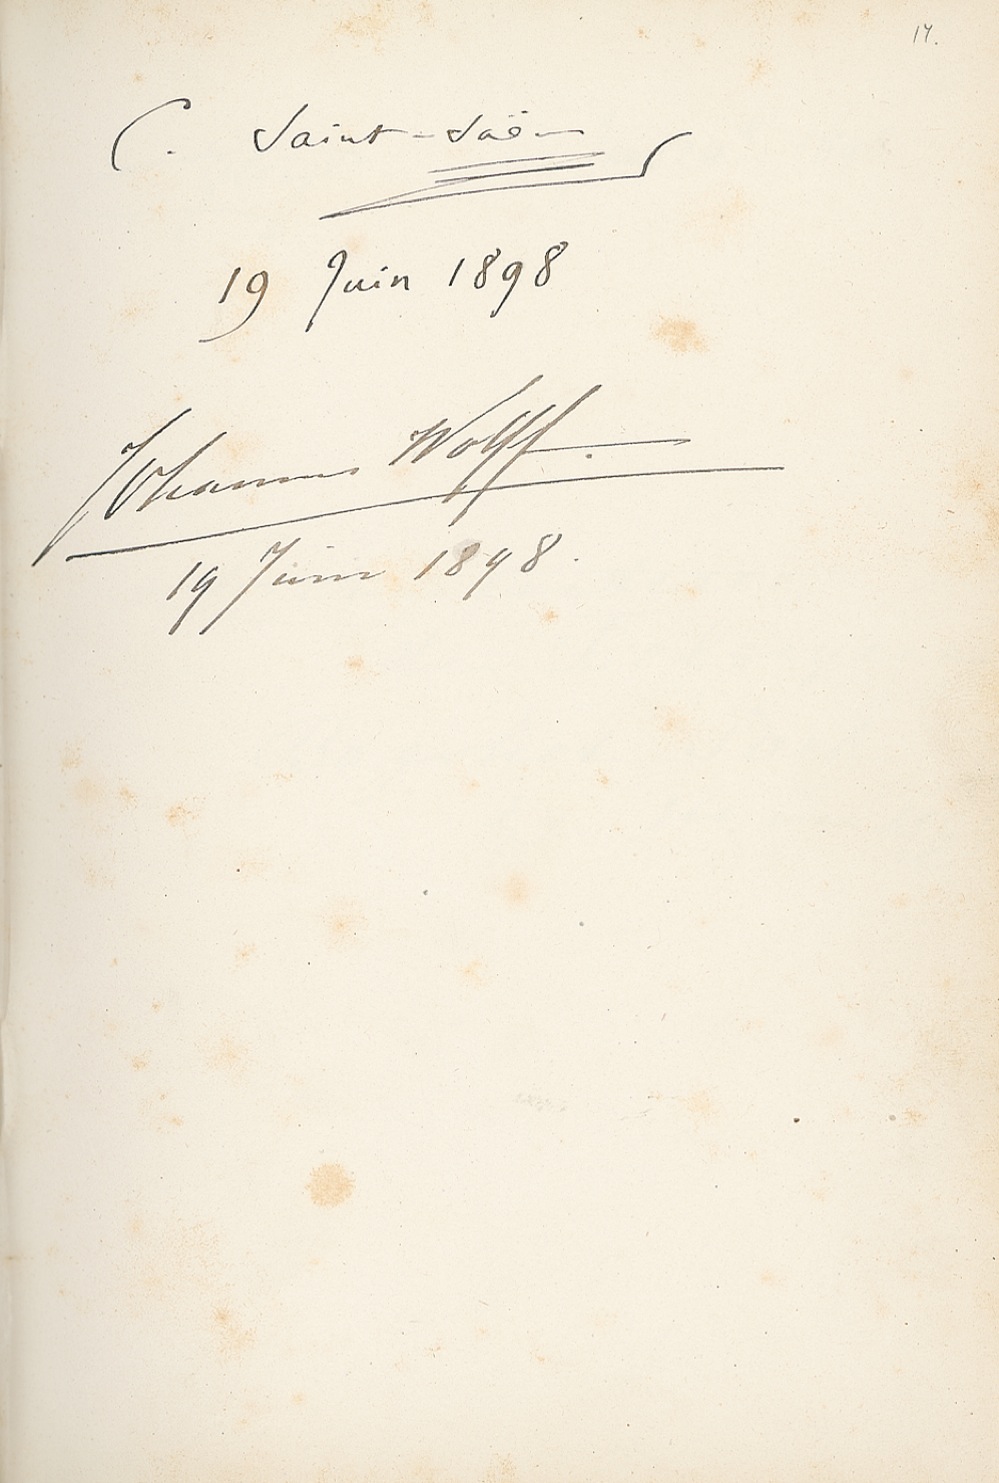 17.
C. Saint-Saëns
19 Juin 1898
Johannes Wolff.
19 Juin 1898.